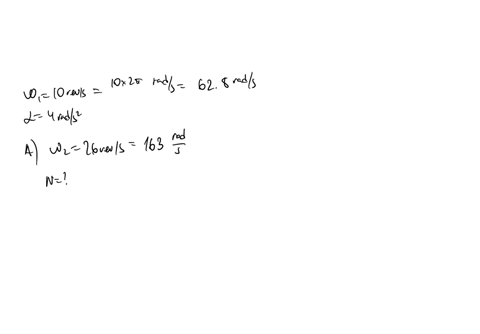 ω₁ = 10 rev/s = 10×2π rad/s = 62.8 rad/s
α = 4 rad/s²
A) ω₂ = 26 rev/s = 163 rad/s
N = ?